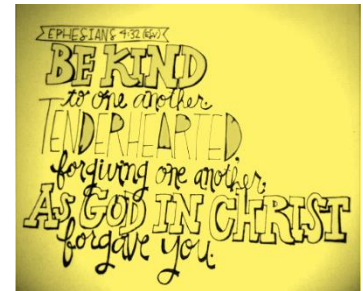 EPHESIANS 4:32 (ESV)
BE KIND
to one another,
TENDERHEARTED,
forgiving one another,
As GOD IN CHRIST
forgave you.